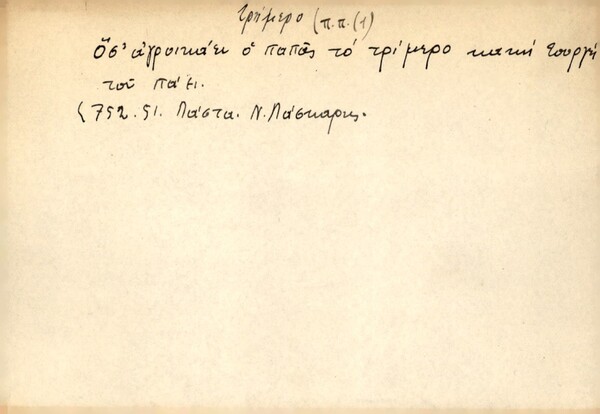 τρίμερο (π.π. (1)
Ὅσ' ἀγροικάει ὁ παπᾶς τό τρίμερο κακή τουργή
τοῦ πάει.
(752. 51. Πάστα. Ν. Πάσκαρης.